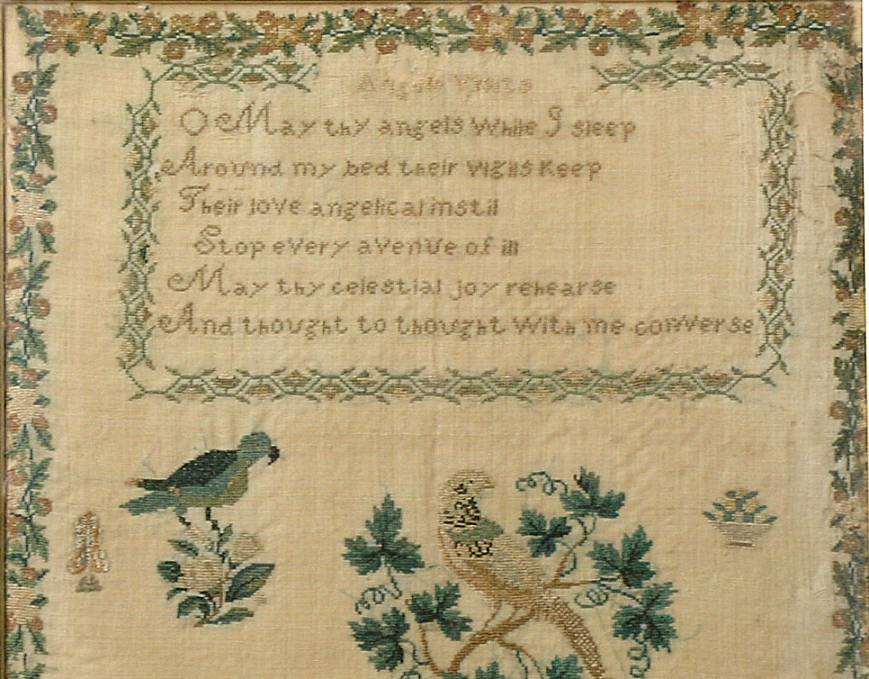 O May thy angels While I sleep
Around my bed their vigils Keep
Their love angelical instil
Stop every avenue of ill
May thy celestial joy rehearse
And thought to thought With me converse